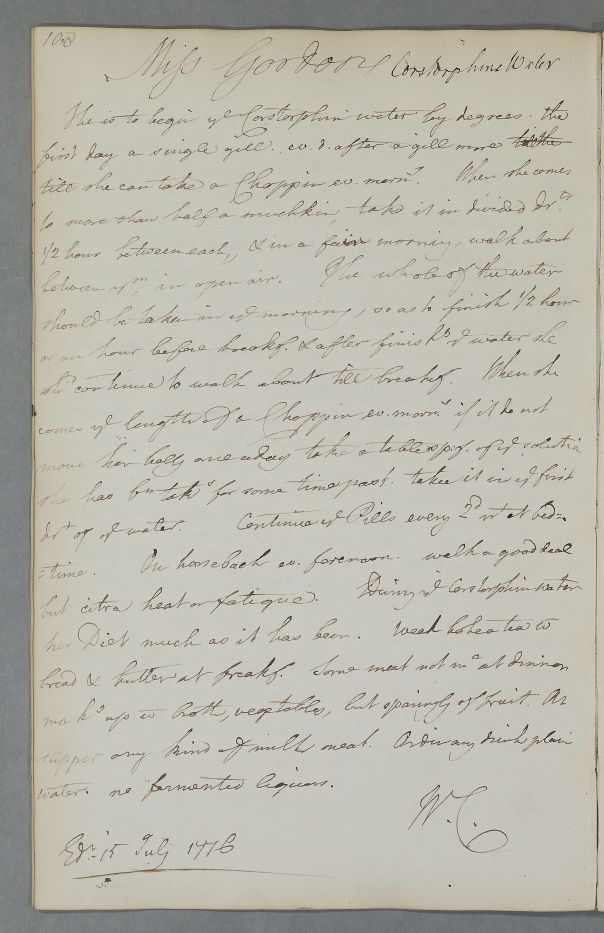 108
Miss Gordon Corstorphine Water
She is to begin ye Corstorphin water by degrees. the
first day a single gill. ev. d. after a gill more to the
till she can take a Choppin ev. morng. When she comes
to more than half a muchkin take it in divided drts
1/2 hour between each, & in a fair morning, walk about
between ym in open air. The whole of the water
should be taken in ye morning, so as to finish 1/2 hour
or an hour before breakf. & after finishg ye water she
shd continue to walk about till breakf. When she
comes ye length of a Choppin ev. morng if it do not
move her belly once a day take a tablesp.f. of ye solution
she has bn takg for some time past. take it in ye first
drt of ye water. Continue ye Pills every 2d nt at bed=
=time. On horseback ev. forenoon. walk a good deal
but citra heat or fatigue. During ye Corstorphin water
her Diet much as it has been. Weak bohea tea wt
bread & butter at breakf. Some meat not mh at dinner
makg up wt broth, vegetables, but sparingly of fruit. At
supper any kind of milk meat. Ordinary drink plain
water. no fermented liquors.
W. C.
Edr. 15 July 1776